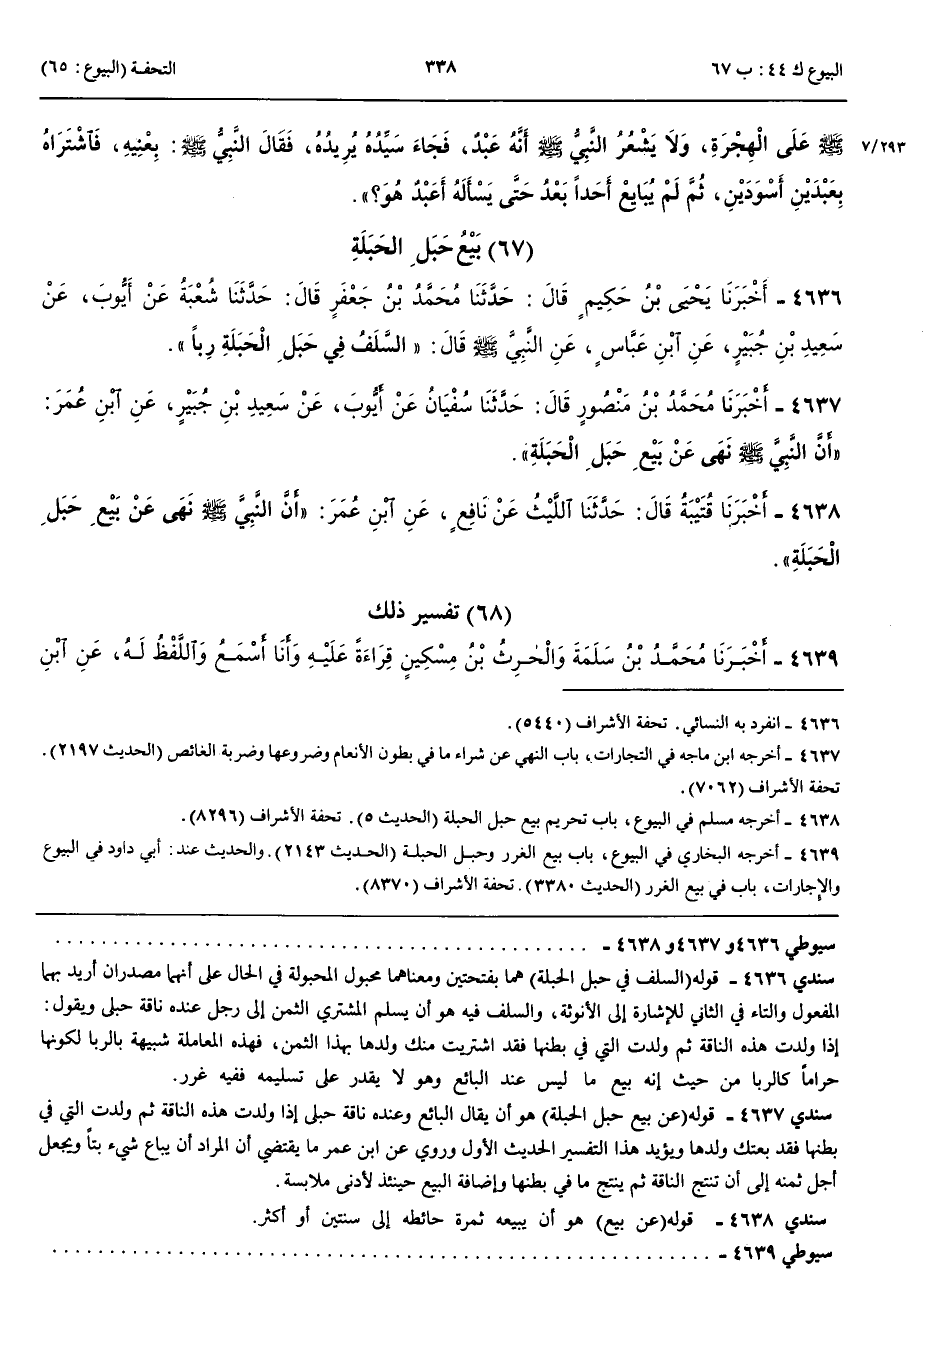 البيوع ك ٤٤: ب ٦٧ ٣٣٨ التحفة (البيوع: ٦٥)
٧/٢٩٣ ﷺ عَلَى الْهِجْرَةِ، وَلَا يَشْعُرُ النَّبِيُّ ﷺ أَنَّهُ عَبْدٌ، فَجَاءَ سَيِّدُهُ يُرِيدُهُ، فَقَالَ النَّبِيُّ ﷺ: بِعْنِيهِ، فَٱشْتَرَاهُ
بِعَبْدَيْنِ أَسْوَدَيْنِ، ثُمَّ لَمْ يُبَايِعْ أَحَداً بَعْدُ حَتَّى يَسْأَلَهُ أَعَبْدٌ هُوَ؟».
(٦٧) بَيْعُ حَبَلِ الحَبَلَةِ
٤٦٣٦ - أَخْبَرَنَا يَحْيَى بْنُ حَكِيمٍ قَالَ: حَدَّثَنَا مُحَمَّدُ بْنُ جَعْفَرٍ قَالَ: حَدَّثَنَا شُعْبَةُ عَنْ أَيُّوبَ، عَنْ
سَعِيدِ بْنِ جُبَيْرٍ، عَنِ ٱبْنِ عَبَّاسٍ، عَنِ النَّبِيِّ ﷺ قَالَ: «السَّلَفُ فِي حَبَلِ الْحَبَلَةِ رِباً».
٤٦٣٧ - أَخْبَرَنَا مُحَمَّدُ بْنُ مَنْصُورٍ قَالَ: حَدَّثَنَا سُفْيَانُ عَنْ أَيُّوبَ، عَنْ سَعِيدِ بْنِ جُبَيْرٍ، عَنِ ٱبْنِ عُمَرَ:
«أَنَّ النَّبِيَّ ﷺ نَهَى عَنْ بَيْعِ حَبَلِ الْحَبَلَةِ».
٤٦٣٨ - أَخْبَرَنَا قُتَيْبَةُ قَالَ: حَدَّثَنَا ٱللَّيْثُ عَنْ نَافِعٍ، عَنِ ٱبْنِ عُمَرَ: «أَنَّ النَّبِيَّ ﷺ نَهَى عَنْ بَيْعِ حَبَلِ
الْحَبَلَةِ».
(٦٨) تفسير ذلك
٤٦٣٩ - أَخْبَرَنَا مُحَمَّدُ بْنُ سَلَمَةَ وَالْحٰرِثُ بْنُ مِسْكِينٍ قِرَاءَةً عَلَيْهِ وَأَنَا أَسْمَعُ وَٱللَّفْظُ لَهُ، عَنِ ٱبْنِ
٤٦٣٦ - انفرد به النسائي. تحفة الأشراف (٥٤٤٠).
٤٦٣٧ - أخرجه ابن ماجه في التجارات، باب النهي عن شراء ما في بطون الأنعام وضروعها وضربة الغائص (الحديث ٢١٩٧).
تحفة الأشراف (٧٠٦٢).
٤٦٣٨ - أخرجه مسلم في البيوع، باب تحريم بيع حبل الحبلة (الحديث ٥). تحفة الأشراف (٨٢٩٦).
٤٦٣٩ - أخرجه البخاري في البيوع، باب بيع الغرر وحبل الحبلة (الحديث ٢١٤٣). والحديث عند: أبي داود في البيوع
والإجارات، باب في بيع الغرر (الحديث ٣٣٨٠). تحفة الأشراف (٨٣٧٠).
سيوطي ٤٦٣٦ و ٤٦٣٧ و ٤٦٣٨ - ............................................
سندي ٤٦٣٦ - قوله (السلف في حبل الحبلة) هما بفتحتين ومعناهما محبول المحبولة في الحال على أنهما مصدران أريد بهما
المفعول والتاء في الثاني للإشارة إلى الأنوثة، والسلف فيه هو أن يسلم المشتري الثمن إلى رجل عنده ناقة حبلى ويقول:
إذا ولدت هذه الناقة ثم ولدت التي في بطنها فقد اشتريت منك ولدها بهذا الثمن، فهذه المعاملة شبيهة بالربا لكونها
حراماً كالربا من حيث إنه بيع ما ليس عند البائع وهو لا يقدر على تسليمه ففيه غرر.
سندي ٤٦٣٧ - قوله (عن بيع حبل الحبلة) هو أن يقال البائع وعنده ناقة حبلى إذا ولدت هذه الناقة ثم ولدت التي في
بطنها فقد بعتك ولدها ويؤيد هذا التفسير الحديث الأول وروي عن ابن عمر ما يقتضي أن المراد أن يباع شيء بتاً ويجعل
أجل ثمنه إلى أن تنتج الناقة ثم ينتج ما في بطنها وإضافة البيع حينئذ لأدنى ملابسة.
سندي ٤٦٣٨ - قوله (عن بيع) هو أن يبيعه ثمرة حائطه إلى سنتين أو أكثر.
سيوطي ٤٦٣٩ - ......................................................